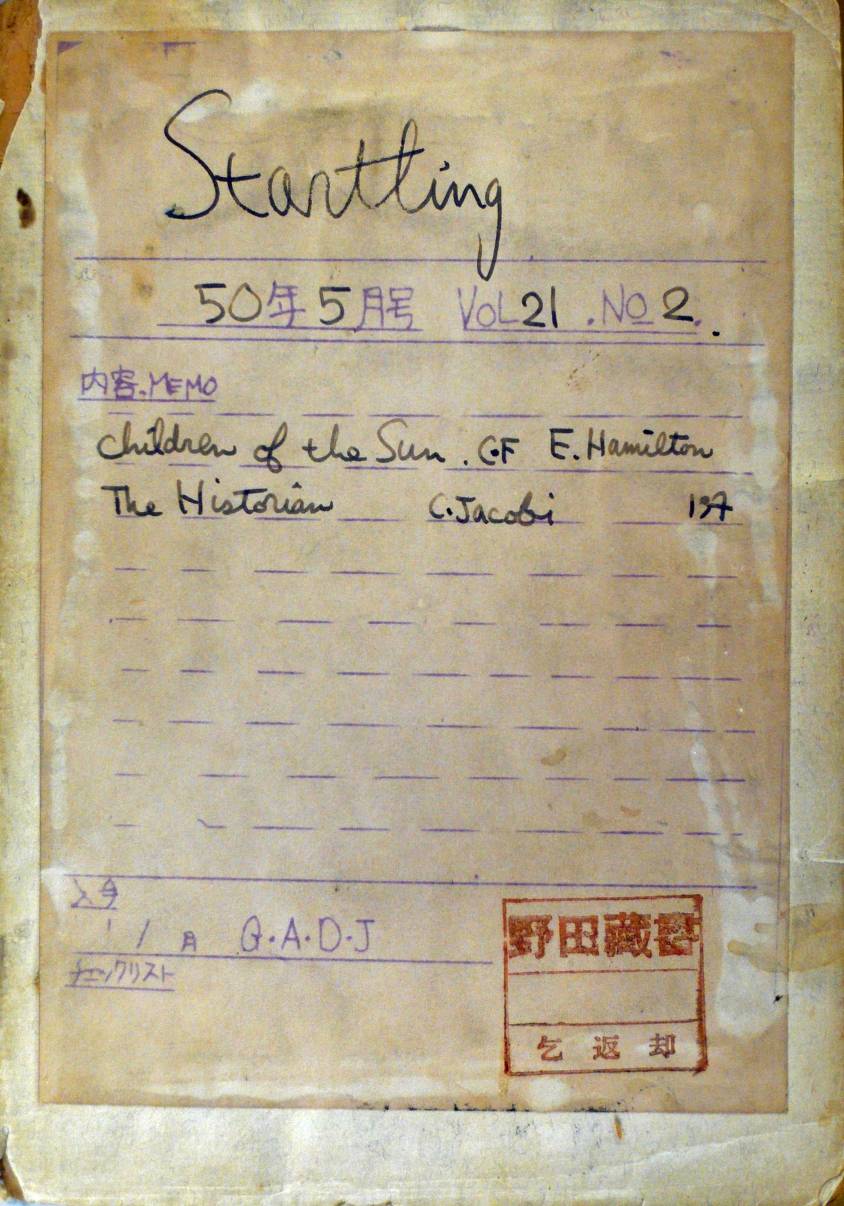 Startling
50年5月号 VOL21 .NO 2.
内容.MEMO
Children of the Sun. C.F E. Hamilton
The Historian C. Jacobi 137
入手
1 / 月 G.A.D.J
チェックリスト
野田藏書
乞返却